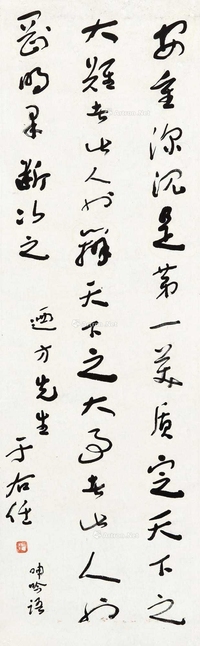 安重深沉是第一美质定天下之
大难者此人也辩天下之大事者此人也
刚明果断次之
迺方先生
于右任
呻吟语